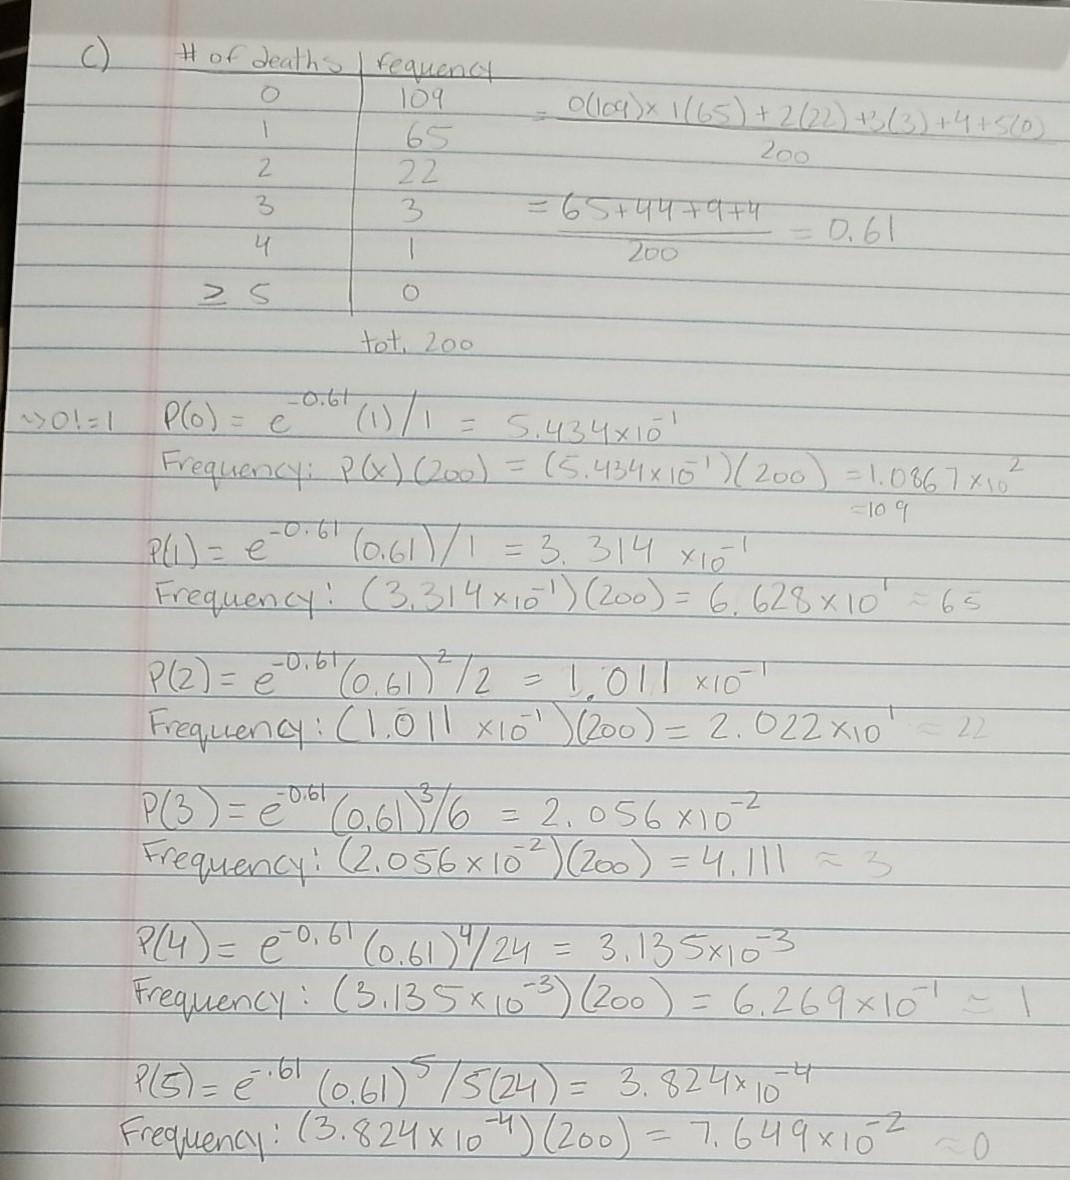 c) # of deaths | frequency
0 109
= 0(109) x 1(65) + 2(22) + 3(3) + 4 + 5(0)
200
1 65
2 22
3 3
= 65+44+9+4 = 0.61
200
4 1
≥ 5 0
tot. 200
~>0!=1 P(0) = e^-0.61 (1)/1 = 5.434x10^-1
Frequency: P(x)(200) = (5.434x10^-1)(200) = 1.0867x10^2
≈109
P(1) = e^-0.61 (0.61)/1 = 3.314 x10^-1
Frequency: (3.314x10^-1)(200) = 6.628x10^1 ≈ 65
P(2) = e^-0.61 (0.61)^2/2 = 1.011 x10^-1
Frequency: (1.011 x10^-1)(200) = 2.022x10^1 ≈ 22
P(3) = e^-0.61 (0.61)^3/6 = 2.056 x10^-2
Frequency: (2.056x10^-2)(200) = 4.111 ≈ 3
P(4) = e^-0.61 (0.61)^4/24 = 3.135x10^-3
Frequency: (3.135x10^-3)(200) = 6.269x10^-1 ≈ 1
P(5) = e^-.61 (0.61)^5/5(24) = 3.824x10^-4
Frequency: (3.824x10^-4)(200) = 7.649x10^-2 ≈0